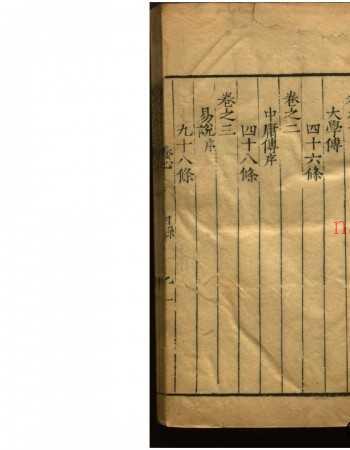 大學傳
四十六條
卷之二
中庸傳序
四十八條
卷之三
易說序
九十八條
目錄